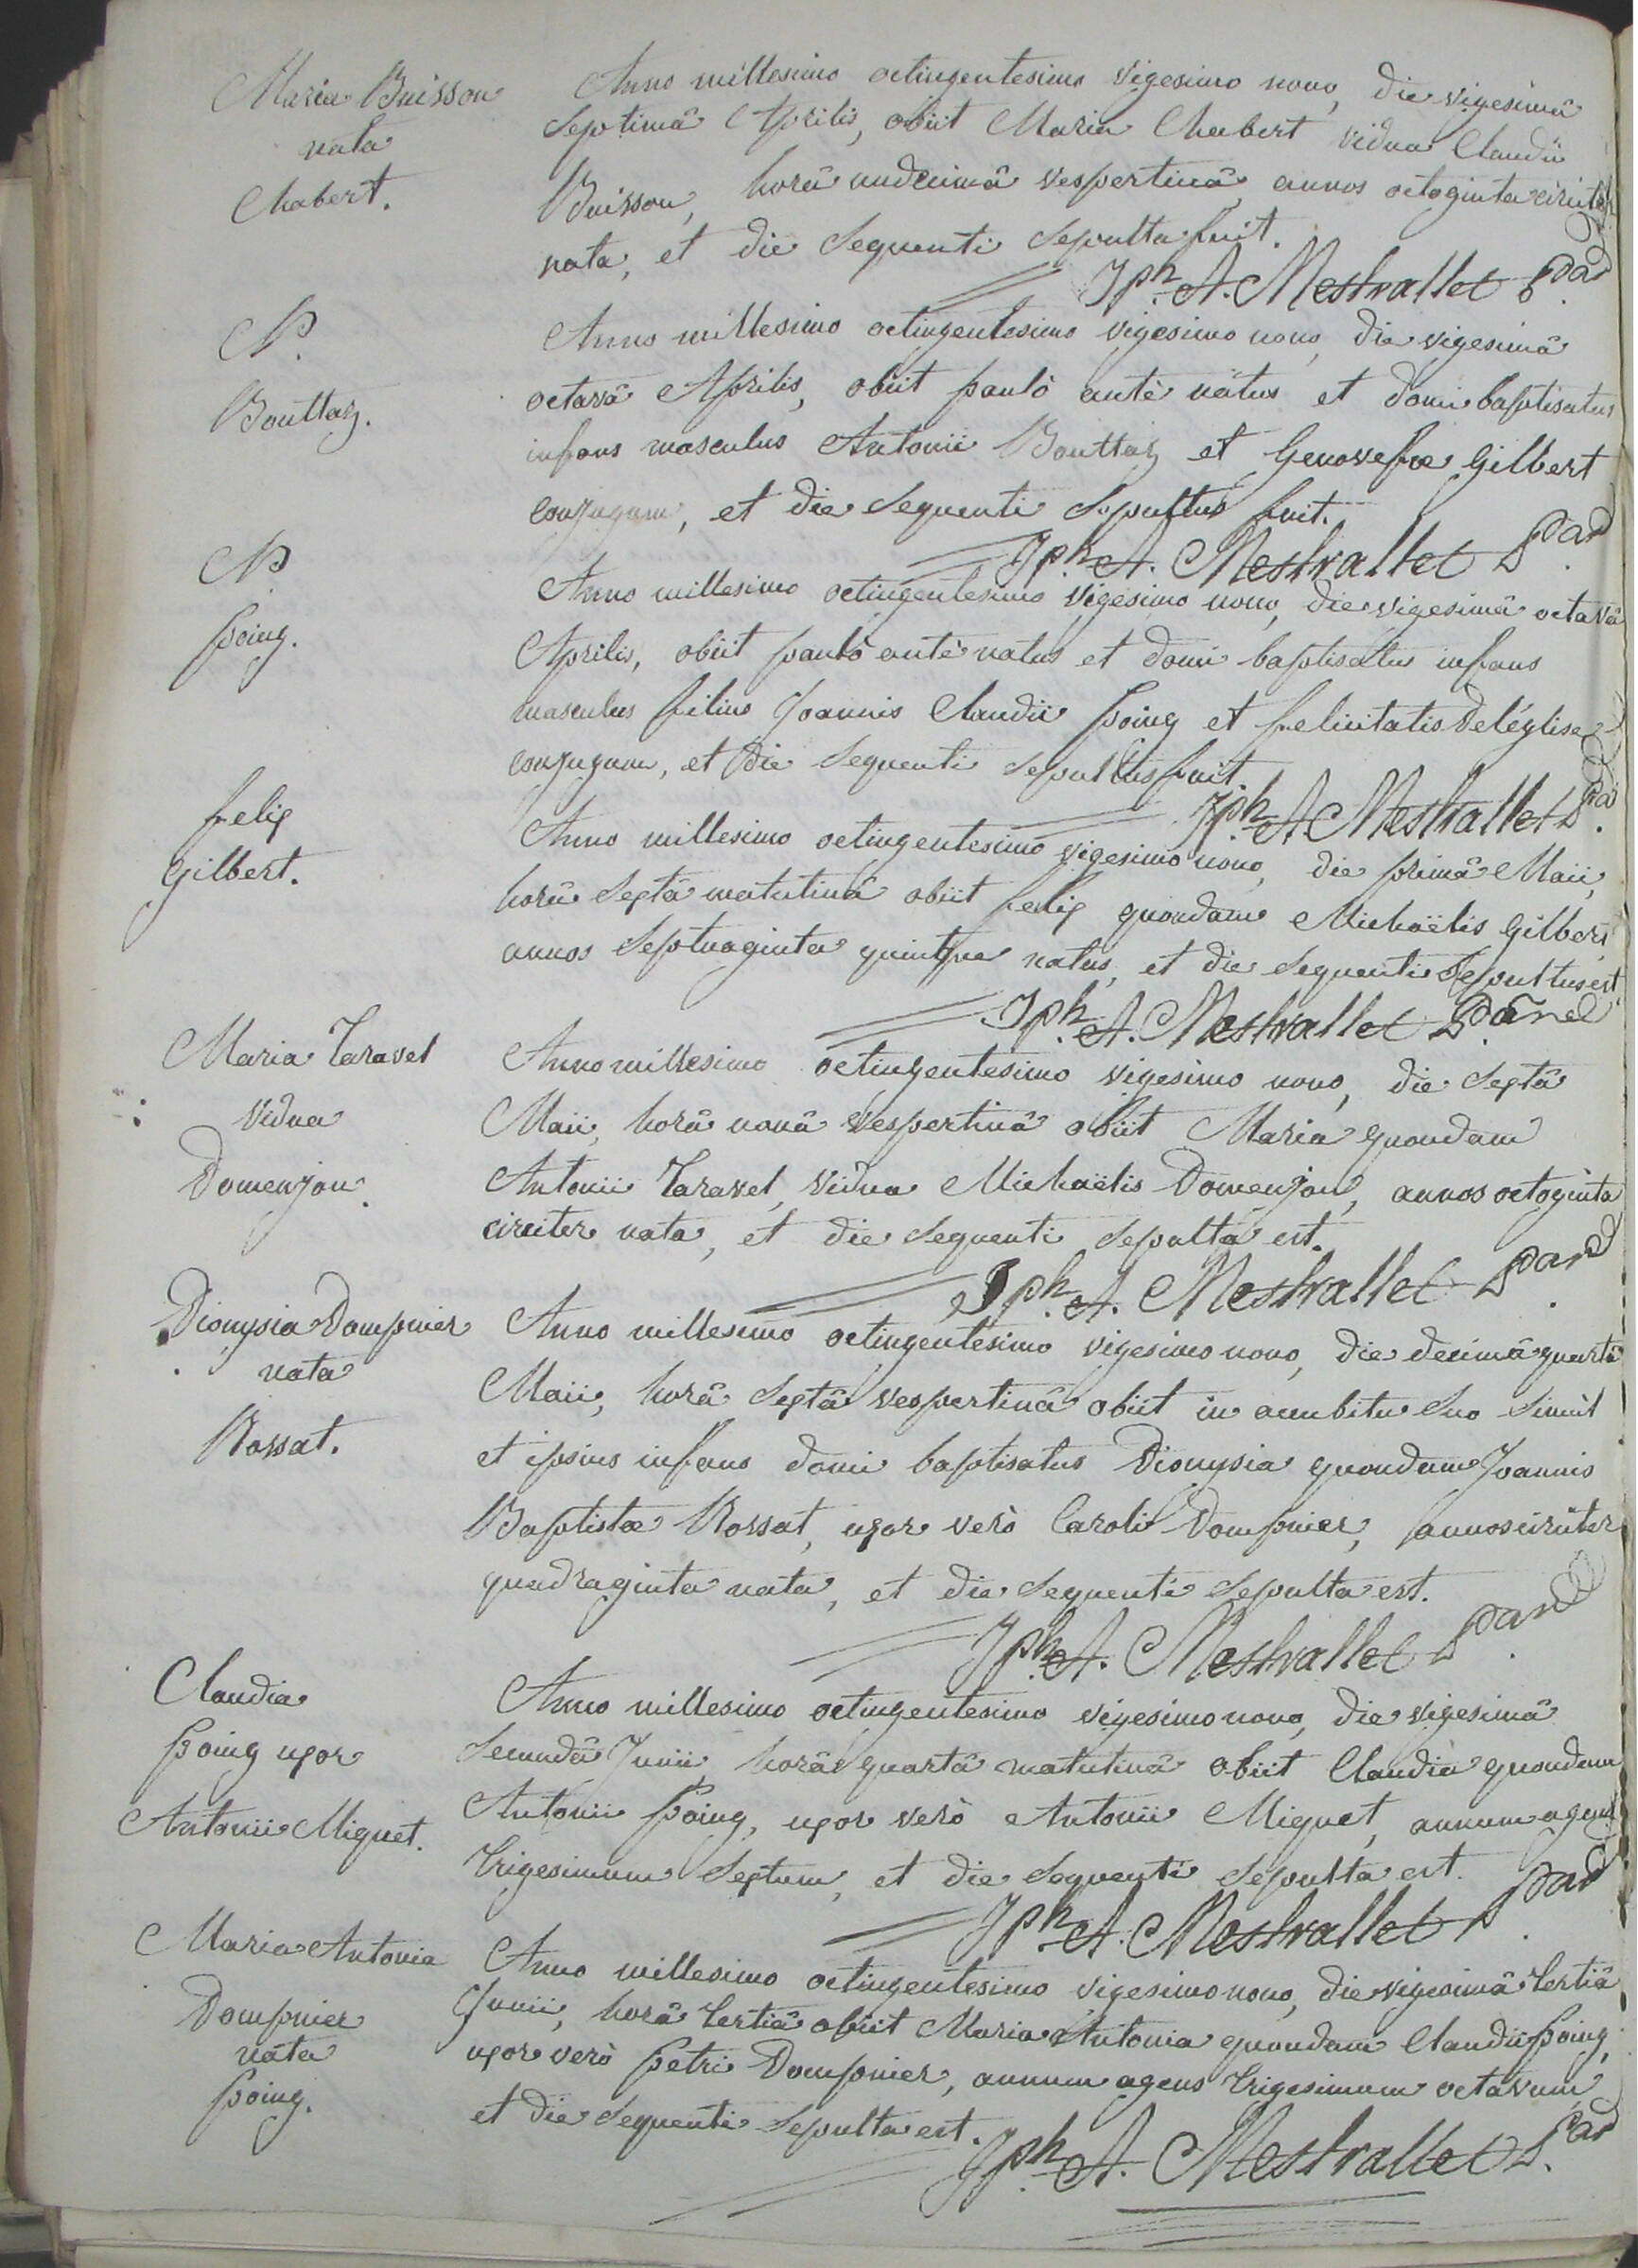 Maria Buisson
nata
Chabert.
Anno millesimo octingentesimo vigesimo nono, die vigesimâ
septimâ Aprilis, obiit Maria Chabert vidua Claudii
Buisson, horâ undecimâ vespertinâ, annos octoginta circiter
nata, et die sequenti sepulta fuit.
Jph. A. Mestrallet
N.
Bouttaz.
Anno millesimo octingentesimo vigesimo nono, die vigesimâ
octavâ Aprilis, obiit paulò antè natus et domi baptisatus
infans masculus Antonii Bouttaz et Genovefæ Gilbert
conjugum, et die sequenti sepultus fuit.
Jph. A. Mestrallet
N.
Poing.
Anno millesimo octingentesimo vigesimo nono, die vigesimâ octavâ
Aprilis, obiit paulò antè natus et domi baptisatus infans
masculus filius Joannis Claudii Poing et felicitatis Deléglise
conjugum, et die sequenti sepultus fuit.
Jph. A. Mestrallet
felix
Gilbert.
Anno millesimo octingentesimo vigesimo nono, die primâ Maii,
horâ sextâ matutinâ obiit felix quondam Michaëlis Gilbert,
annos septuaginta quinque natus, et die sequenti sepultus est.
Jph. A. Mestrallet
Maria Taravel
vidua
Domenjon.
Anno millesimo octingentesimo vigesimo nono, die sextâ
Maii, horâ nonâ vespertinâ obiit Maria quondam
Antonii Taravel, vidua Michaëlis Domenjon, annos octoginta
circiter nata, et die sequenti sepulta est.
Jph. A. Mestrallet
Dionysia Dompnier
nata
Rossat.
Anno millesimo octingentesimo vigesimo nono, die decimâ quartâ
Maii, horâ sextâ vespertinâ obiit in accubitu suo simùl
et ipsius infans domi baptisatus Dionysia quondam Joannis
Baptistæ Rossat, uxor verò Caroli Dompnier, annos circiter
quadraginta nata, et die sequenti sepulta est.
Jph. A. Mestrallet
Claudia
Poing uxor
Antonii Miguet.
Anno millesimo octingentesimo vigesimo nono, die vigesimâ
secundâ Junii, horâ quartâ matutinâ obiit Claudia quondam
Antonii Poing, uxor verò Antonii Miguet, annum agens
trigesimum sextum, et die sequenti sepulta est.
Jph. A. Mestrallet
Maria Antonia
Dompnier
nata
Poing.
Anno millesimo octingentesimo vigesimo nono, die vigesimâ tertiâ
Junii, horâ tertiâ obiit Maria Antonia quondam Claudii Poing,
uxor verò Petri Dompnier, annum agens trigesimum octavum,
et die sequenti sepulta est.
Jph. A. Mestrallet